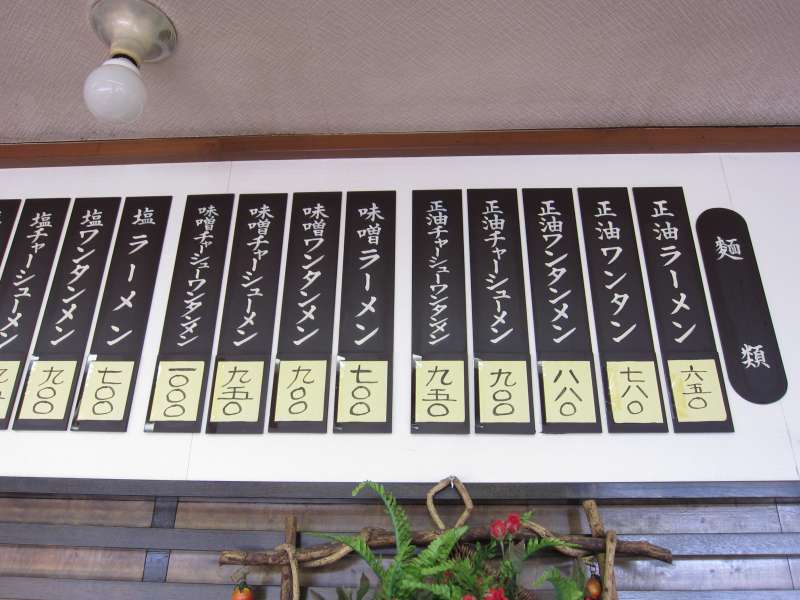 麺類
正油ラーメン
六五〇
正油ワンタン
七八〇
正油ワンタンメン
八八〇
正油チャーシューメン
九〇〇
正油チャーシューワンタンメン
九五〇
味噌ラーメン
七〇〇
味噌ワンタンメン
九〇〇
味噌チャーシューメン
九五〇
味噌チャーシューワンタンメン
一〇〇〇
塩ラーメン
七〇〇
塩ワンタンメン
九〇〇
塩チャーシューメン